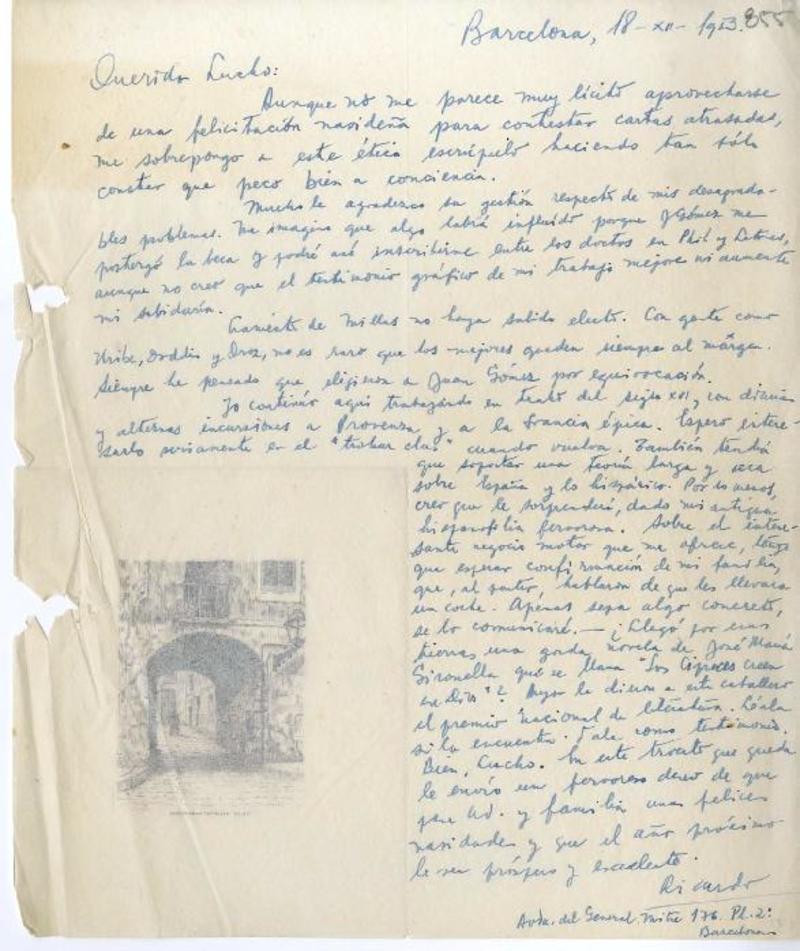 Barcelona, 18-XII-1953. 855
Querido Lucho:
Aunque no me parece muy lícito aprovecharse
de una felicitación navideña para contestar cartas atrasadas,
me sobrepongo a este ético escrúpulo haciendo tan sólo
constar que peco bien a conciencia.
Mucho le agradezco su gestión respecto de mis desagrada-
bles problemas. Me imagino que algo habrá influído porque JGómez me
postergó la beca y podré así inscribirme entre los doctos en Phil y Letras,
aunque no creo que el testimonio gráfico de mi trabajo mejore ni aumente
mi sabiduría.
Lamento de Millas no haya salido electo. Con gente como
Uribe, Doddis y Oroz, no es raro que los mejores queden siempre al márgen.
Siempre he pensado que eligieron a Juan Gómez por equivocación.
Yo continúo aquí trabajando en teatro del siglo XVI, con diarias
y alternas incursiones a Provenza y a la Francia épica. Espero intere-
sarlo seriamente en el "trobar clus" cuando vuelva. También tendrá
que soportar una teoría larga y seca
sobre España y lo hispánico. Por lo menos,
creo que le sorprenderá, dado mi antigua
hispanofilia fervorosa. Sobre el intere-
sante negocio motor que me ofrece, tengo
que esperar confirmación de mi familia,
que, al partir, hablaron de que les llevara
un coche. Apenas sepa algo concreto,
se lo comunicaré. — ¿Llegó por esas
tierras una gorda novela de José María
Gironella que se llama "Los Cipreses creen
en Dios"? Ayer le dieron a este caballero
el premio nacional de literatura. Léala
si la encuentra. Vale como testimonio.
Bien, Lucho. En este trocito que queda
le envío un fervoroso deseo de que
pase Ud. y familia unas felices
navidades y que el año próximo
le sea próspero y excelente.
Ricardo
Avda. del General Mitre 176. Pl. 2ª
Barcelona